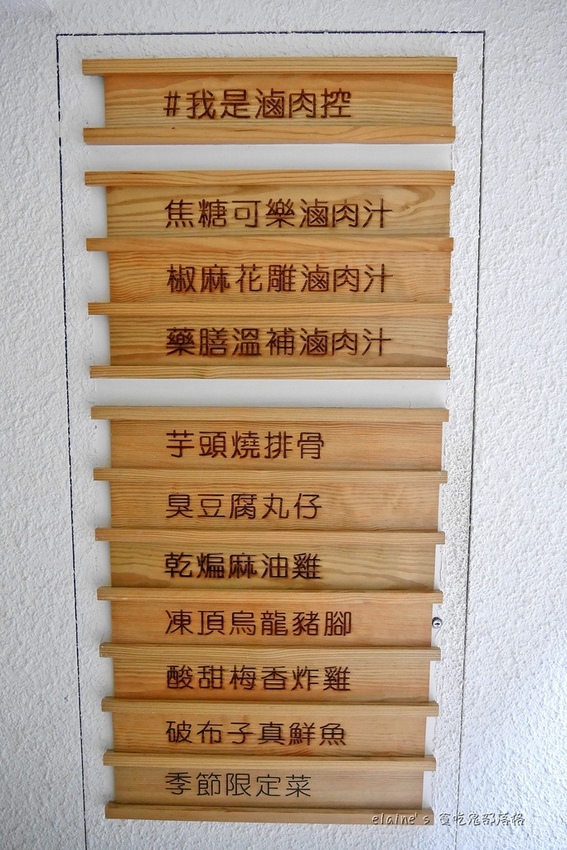 #我是滷肉控
焦糖可樂滷肉汁
椒麻花雕滷肉汁
藥膳溫補滷肉汁
芋頭燒排骨
臭豆腐丸仔
乾煸麻油雞
凍頂烏龍豬腳
酸甜梅香炸雞
破布子真鮮魚
季節限定菜
elaine's 貪吃鬼部落格